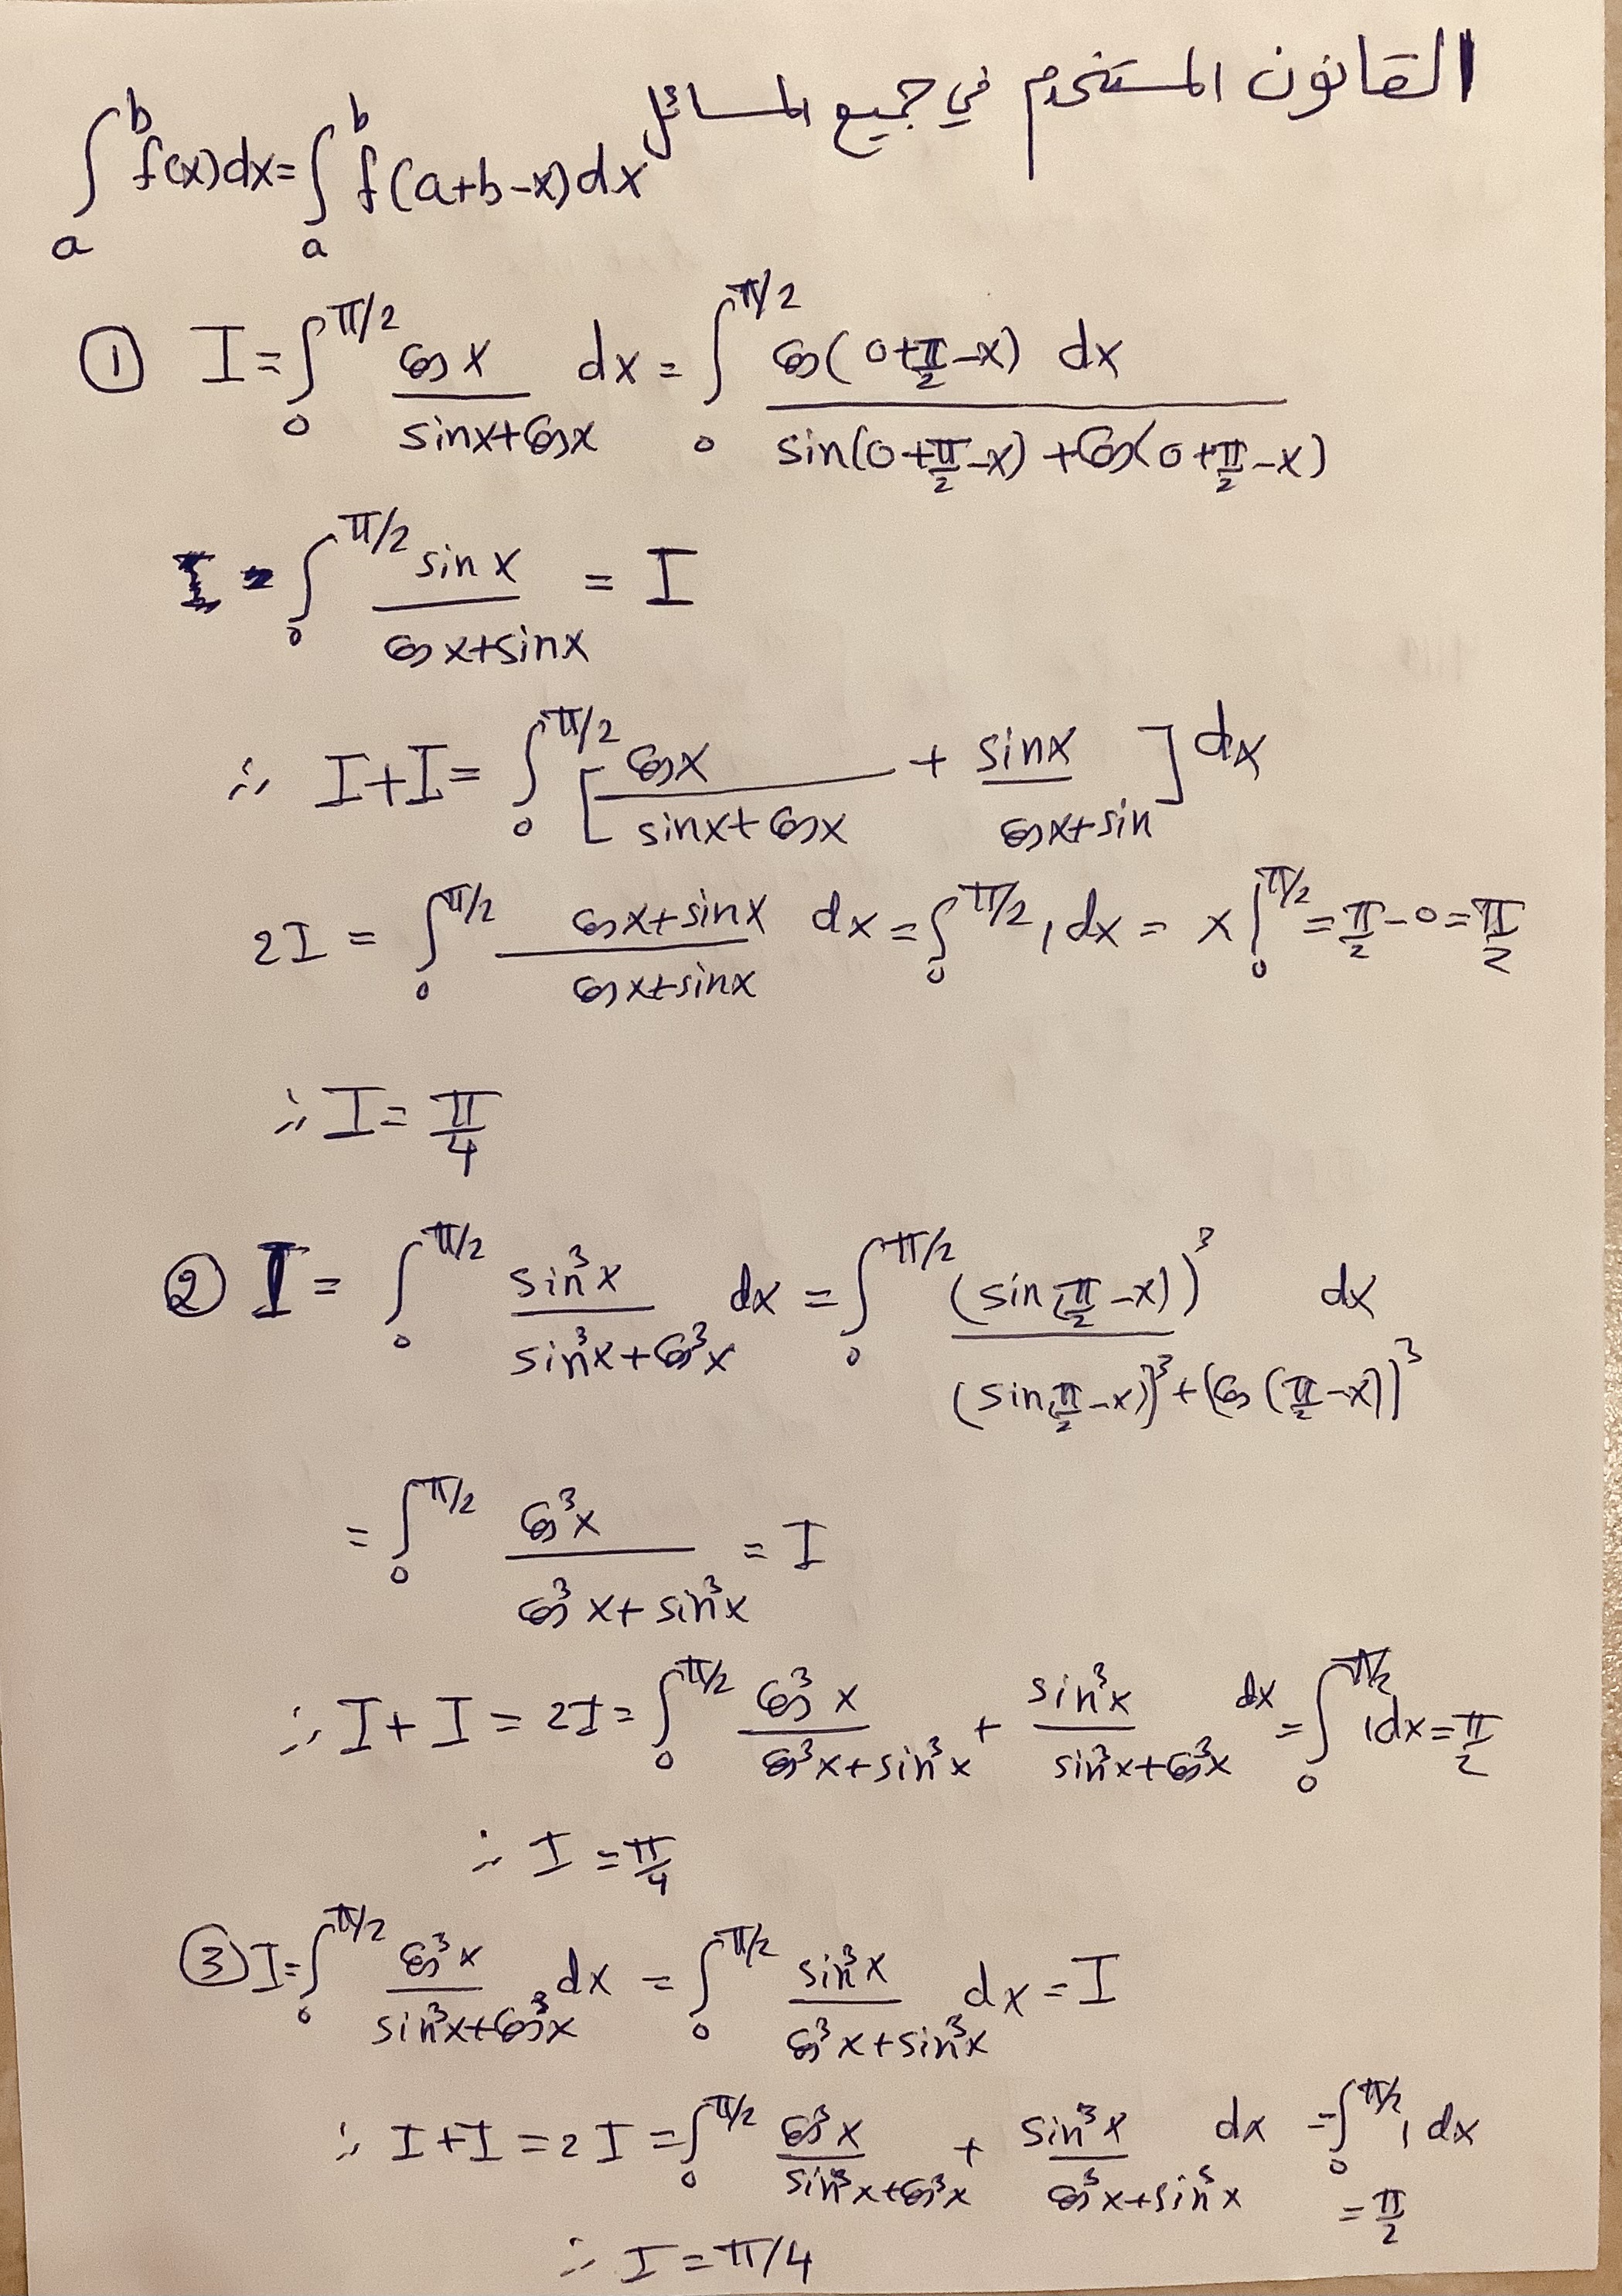 القانون المستخدم في جميع المسائل
∫_a^b f(x)dx = ∫_a^b f(a+b-x)dx
① I = ∫_0^{π/2} cos x / (sinx+cosx) dx = ∫_0^{π/2} cos(0+π/2-x) dx / (sin(0+π/2-x) + cos(0+π/2-x))
I = ∫_0^{π/2} sin x / (cos x+sinx) = I
∴ I+I = ∫_0^{π/2} [cosx / (sinx+cosx) + sinx / (cosx+sin)] dx
2I = ∫_0^{π/2} (cosx+sinx) / (cosx+sinx) dx = ∫_0^{π/2} 1 dx = x|_0^{π/2} = π/2 - 0 = π/2
∴ I = π/4
② I = ∫_0^{π/2} sin³x / (sin³x+cos³x) dx = ∫_0^{π/2} (sin(π/2-x))³ / ((sin(π/2-x))³+(cos(π/2-x))³) dx
= ∫_0^{π/2} cos³x / (cos³x+sin³x) = I
∴ I+I = 2I = ∫_0^{π/2} cos³x / (cos³x+sin³x) + sin³x / (sin³x+cos³x) dx = ∫_0^{π/2} 1dx = π/2
∴ I = π/4
③ I = ∫_0^{π/2} cos³x / (sin³x+cos³x) dx = ∫_0^{π/2} sin³x / (cos³x+sin³x) dx = I
∴ I+I = 2I = ∫_0^{π/2} cos³x / (sin³x+cos³x) + sin³x / (cos³x+sin³x) dx = ∫_0^{π/2} 1 dx
= π/2
∴ I = π/4